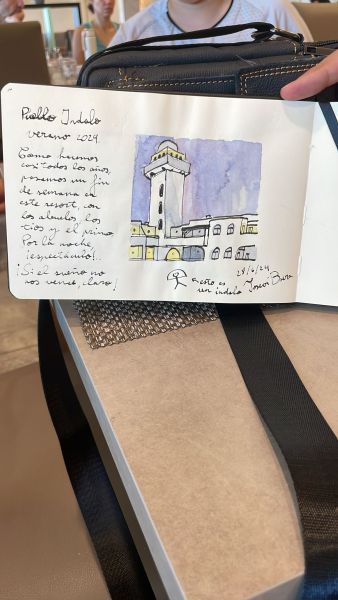 Pueblo Indalo
verano 2024.
Como hacemos
casi todos los años,
pasamos un fin
de semana en
este resort, con
los abuelos, los
tíos y el primo.
Por la noche,
¡espectáculo!..
¡Si el sueño no
nos vence, claro!
28/6/24
esto es
un indalo